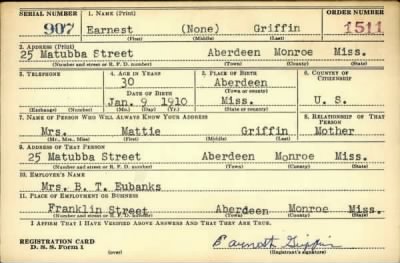 SERIAL NUMBER 1. NAME (Print) ORDER NUMBER
907 Earnest (None) Griffin 1511
(First) (Middle) (Last)
2. ADDRESS (Print)
25 Matubba Street Aberdeen Monroe Miss.
(Number and street or R. F. D. number) (Town) (County) (State)
3. TELEPHONE 4. AGE IN YEARS 5. PLACE OF BIRTH 6. COUNTRY OF CITIZENSHIP
30 Aberdeen
(Town or county)
DATE OF BIRTH
Jan. 9 1910 Miss. U. S.
(Exchange) (Number) (Mo.) (Day) (Yr.) (State or country)
7. NAME OF PERSON WHO WILL ALWAYS KNOW YOUR ADDRESS 8. RELATIONSHIP OF THAT PERSON
Mrs. Mattie Griffin Mother
(Mr., Mrs., Miss) (First) (Middle) (Last)
9. ADDRESS OF THAT PERSON
25 Matubba Street Aberdeen Monroe Miss.
(Number and street or R. F. D. number) (Town) (County) (State)
10. EMPLOYER'S NAME
Mrs. B. T. Eubanks
11. PLACE OF EMPLOYMENT OR BUSINESS
Franklin Street Aberdeen Monroe Miss.
(Number and street or R. F. D. number) (Town) (County) (State)
I AFFIRM THAT I HAVE VERIFIED ABOVE ANSWERS AND THAT THEY ARE TRUE.
REGISTRATION CARD
D. S. S. Form 1 (over) (Registrant's signature)